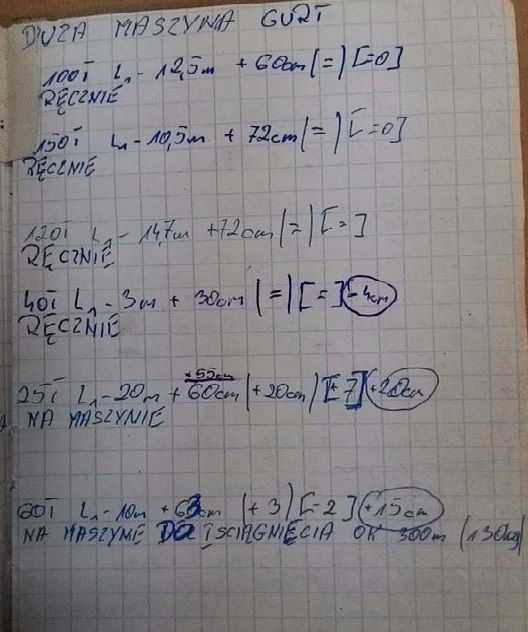 DUŻA MASZYNA GURT
100T L1 - 12,5m + 60cm (=) [=0]
RĘCZNIE
150T L1 - 10,5m + 72cm (=) [=0]
RĘCZNIE
120T L1 - 14,7m + 72cm (=) [= ]
RĘCZNIE
40T L1 - 3m + 30cm (=) [=] -4cm
RĘCZNIE
+55cm
25T L1 - 20m + 60cm (+20cm) [+7] +20cm
NA MASZYNIE
60T L1 - 10m + 63cm (+3) [-2] +15cm
NA MASZYNIE DO ŚCIĄGNIĘCIA OK 300m (130kg)